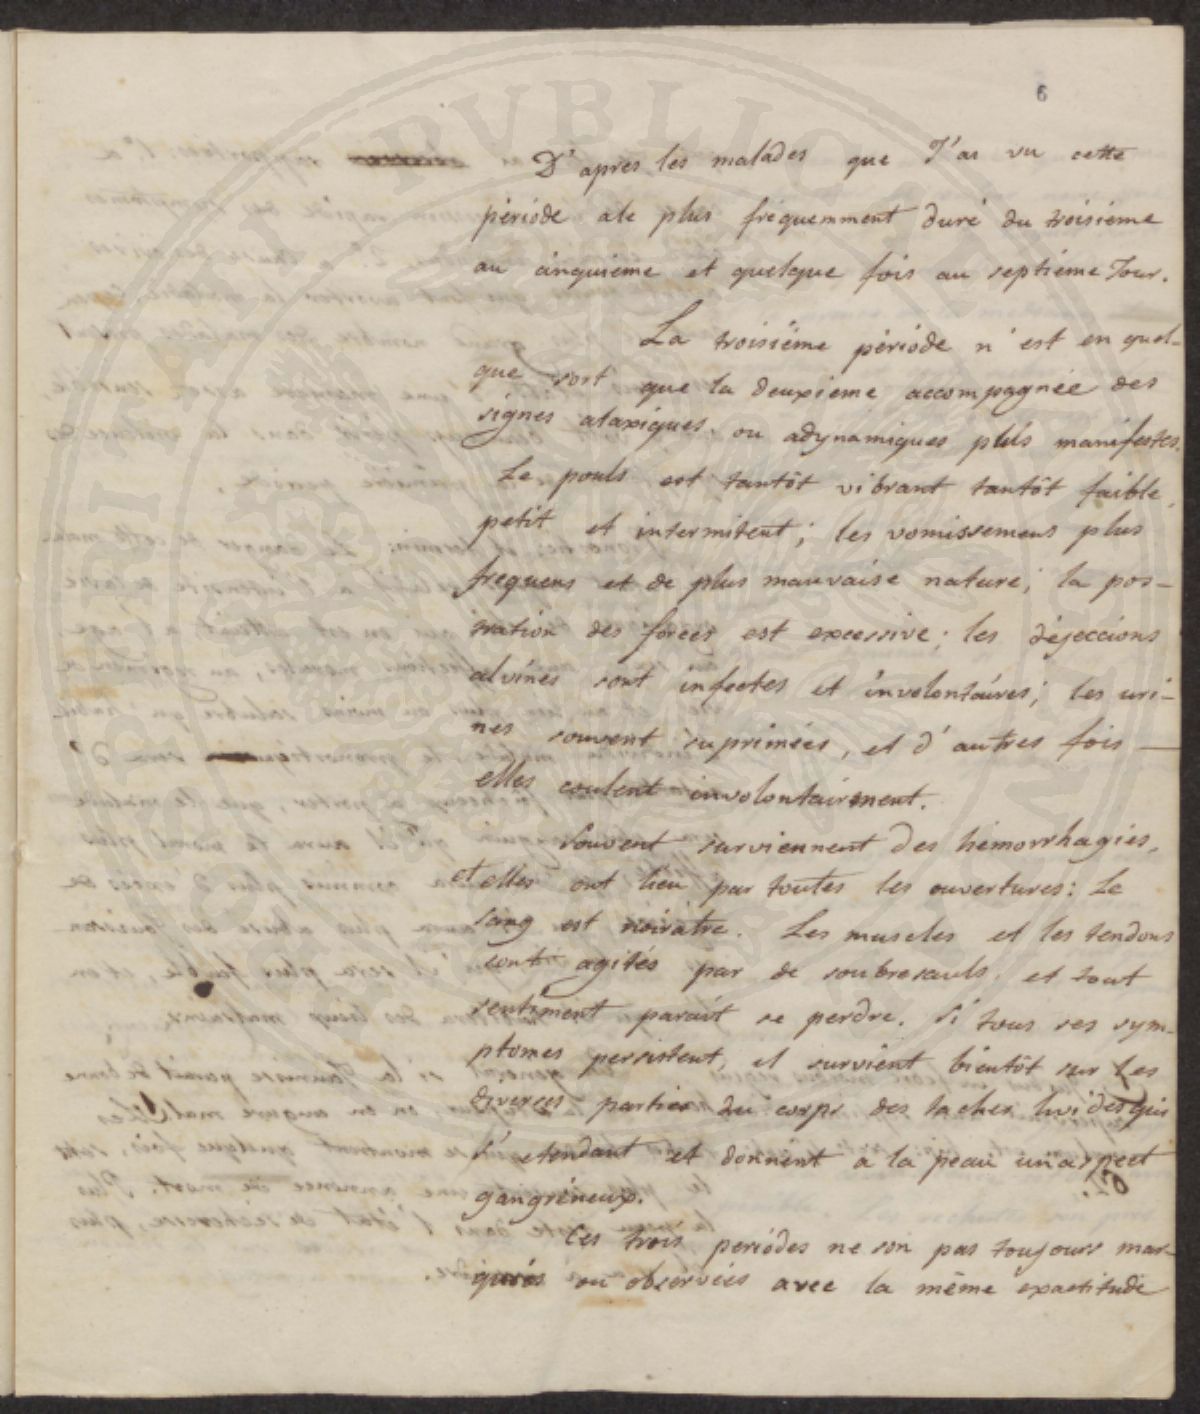 6
D'apres les malades que J'ai vu cette
périóde ale plus fréquemment duré du troisiéme
au cinquieme et quelque fois au septiéme Jour.
La troisiéme périóde n'est en quel-
que sort que la deuxieme accompagnée des
signes ataxiques ou adynamiques plus manifestes.
Le pouls est tantôt vibrant tantôt faible,
petit et intermitent; les vomissemens plus
frequens et de plus mauvaise nature; la pos-
tration des forces est excessive; les déjeccions
alvines sont infectes et involontaires; les uri-
nes souvent suprimées, et d'autres fois —
elles coulent involontairement.
Souvent surviennent des hémorrhagies,
et elles ont lieu par toutes les ouvertures: Le
sang est noiratre. Les muscles et les tendons
sont agités par de soubresauls, et tout
sentiment parait se perdre. Si tous ses sym-
ptomes persistent, il survient bientôt sur les
diverces parties du corps des taches livides qui
s'etendant et donnent a la peau un aspect
gangréneux.
Ces trois periódes ne son pas toujours mar-
queés ou observées avec la même exactitude